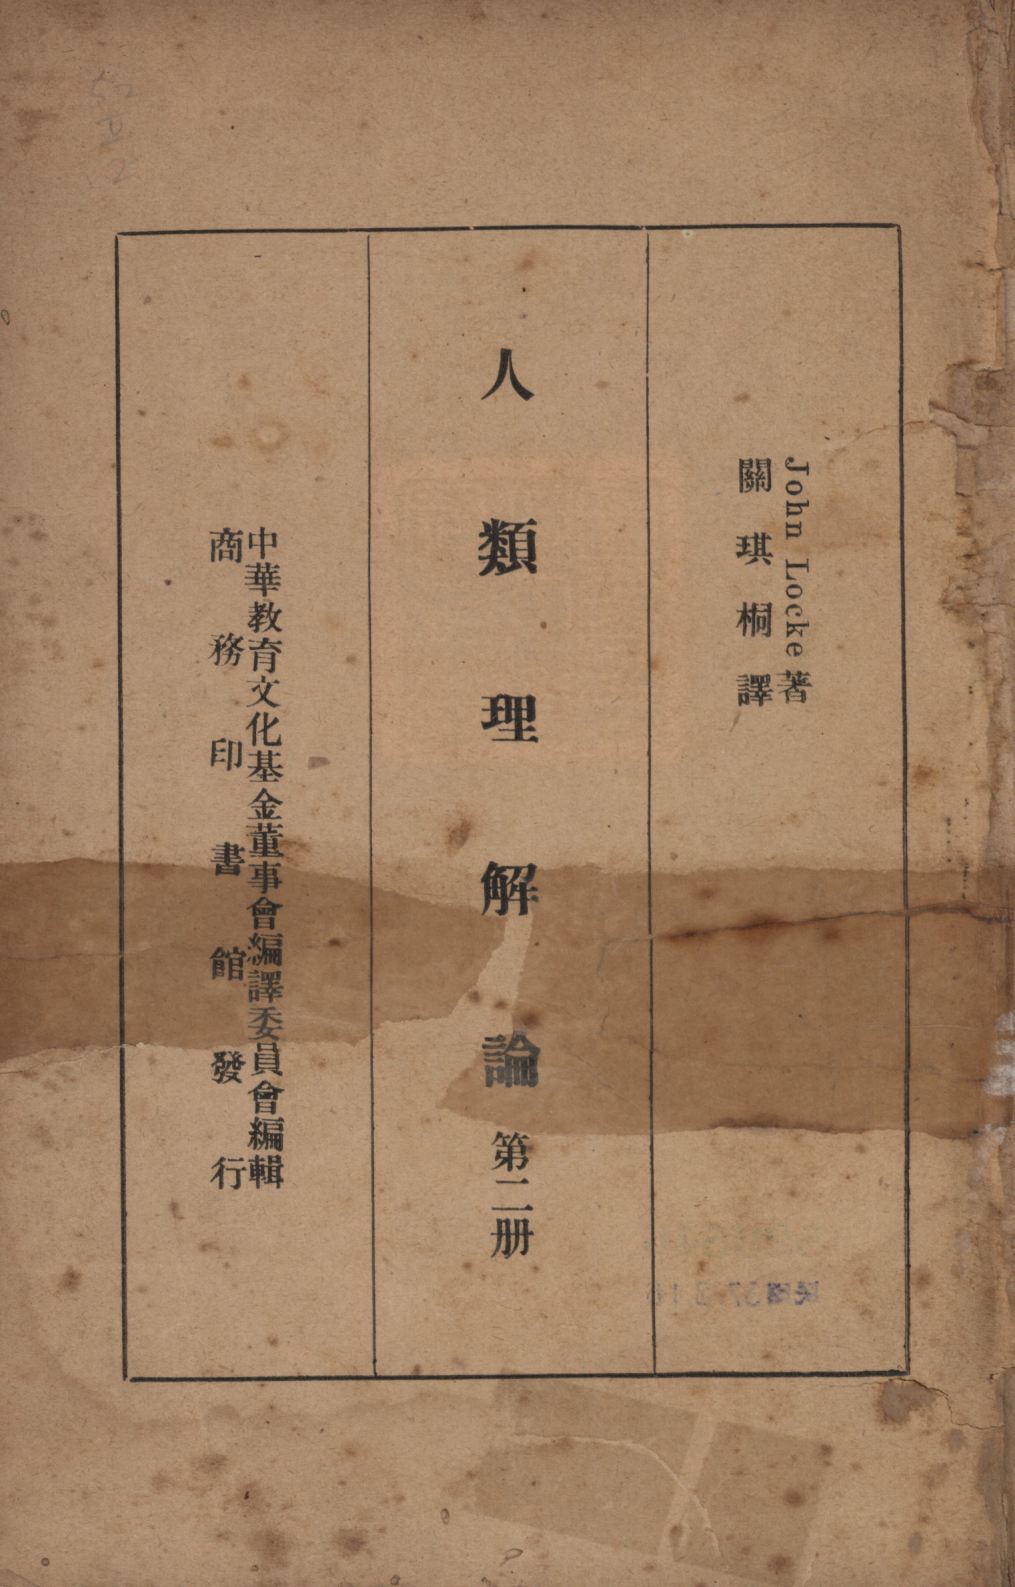 John Locke著
關琪桐譯
人類理解論 第二册
中華教育文化基金董事會編譯委員會編輯
商務印書館發行